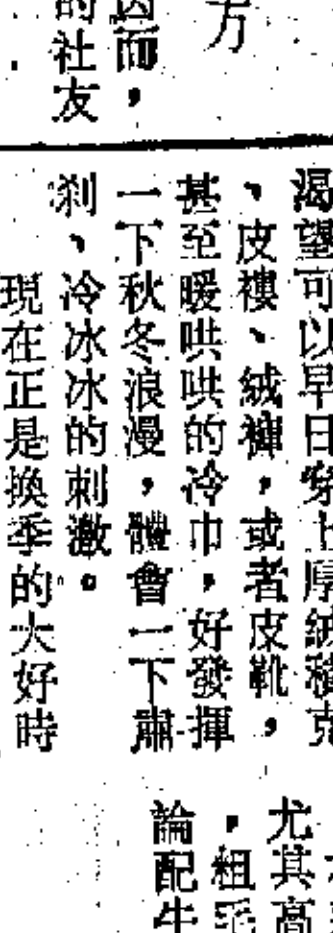 方
因而，
的社友
渴望可以早日穿上厚絨積克
、皮褸、絨褲，或者皮靴，
甚至暖哄哄的冷巾，好發揮
一下秋冬浪漫，體會一下肅
刹、冷冰冰的刺激。
現在正是換季的大好時
尤其高
，粗毛
論配牛